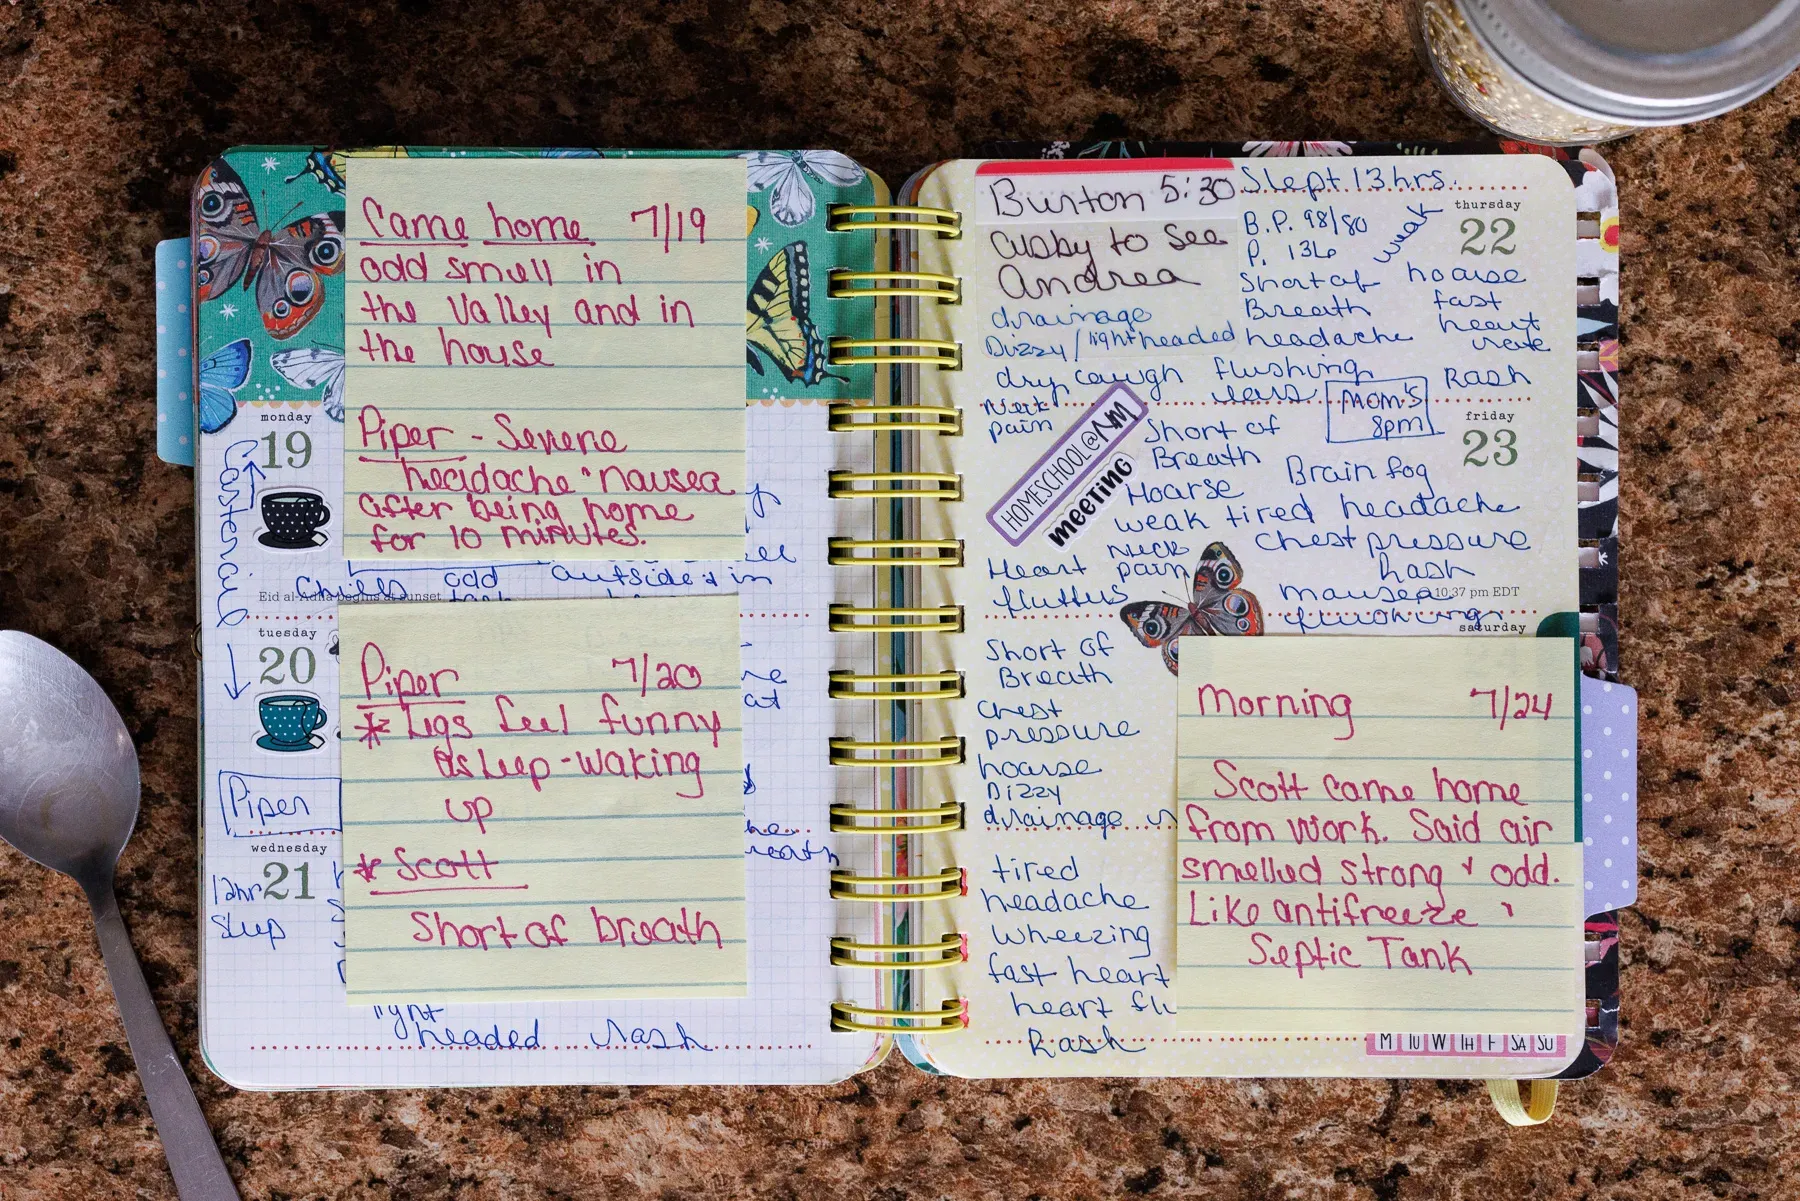 Came home 7/19
odd smell in
the Valley and in
the house
Piper - Severe
headache + nausea
after being home
for 10 minutes.
monday
19
Chills odd outside + in
Eid al-Adha begins at sunset
tuesday
20
Piper 7/20
* Legs feel funny
asleep - waking
up
* Scott
Short of breath
Piper
wednesday
21
12hr
Sleep
light
headed rash
Burton 5:30
Cusby to See
Andrea
drainage
Dizzy/lightheaded
dry cough
Neck
pain
Slept 13 hrs.
B.P. 98/80
P. 136
weak
Short of
Breath
headache
flushing
ears
thursday
22
hoarse
fast
heart
rate
Rash
MOM'S
8pm
HOMESCHOOL@NM
MEETING
friday
23
Short of
Breath
Hoarse
weak tired headache
Neck
pain
Brain fog
chest pressure
Rash
nausea
flushing
10:37 pm EDT
Heart
flutters
saturday
Short of
Breath
Chest
pressure
hoarse
Dizzy
drainage
Morning 7/24
Scott came home
from work. Said air
smelled strong + odd.
Like antifreeze +
Septic Tank
tired
headache
wheezing
fast heart
heart flu
Rash
M TU W TH F SA SU